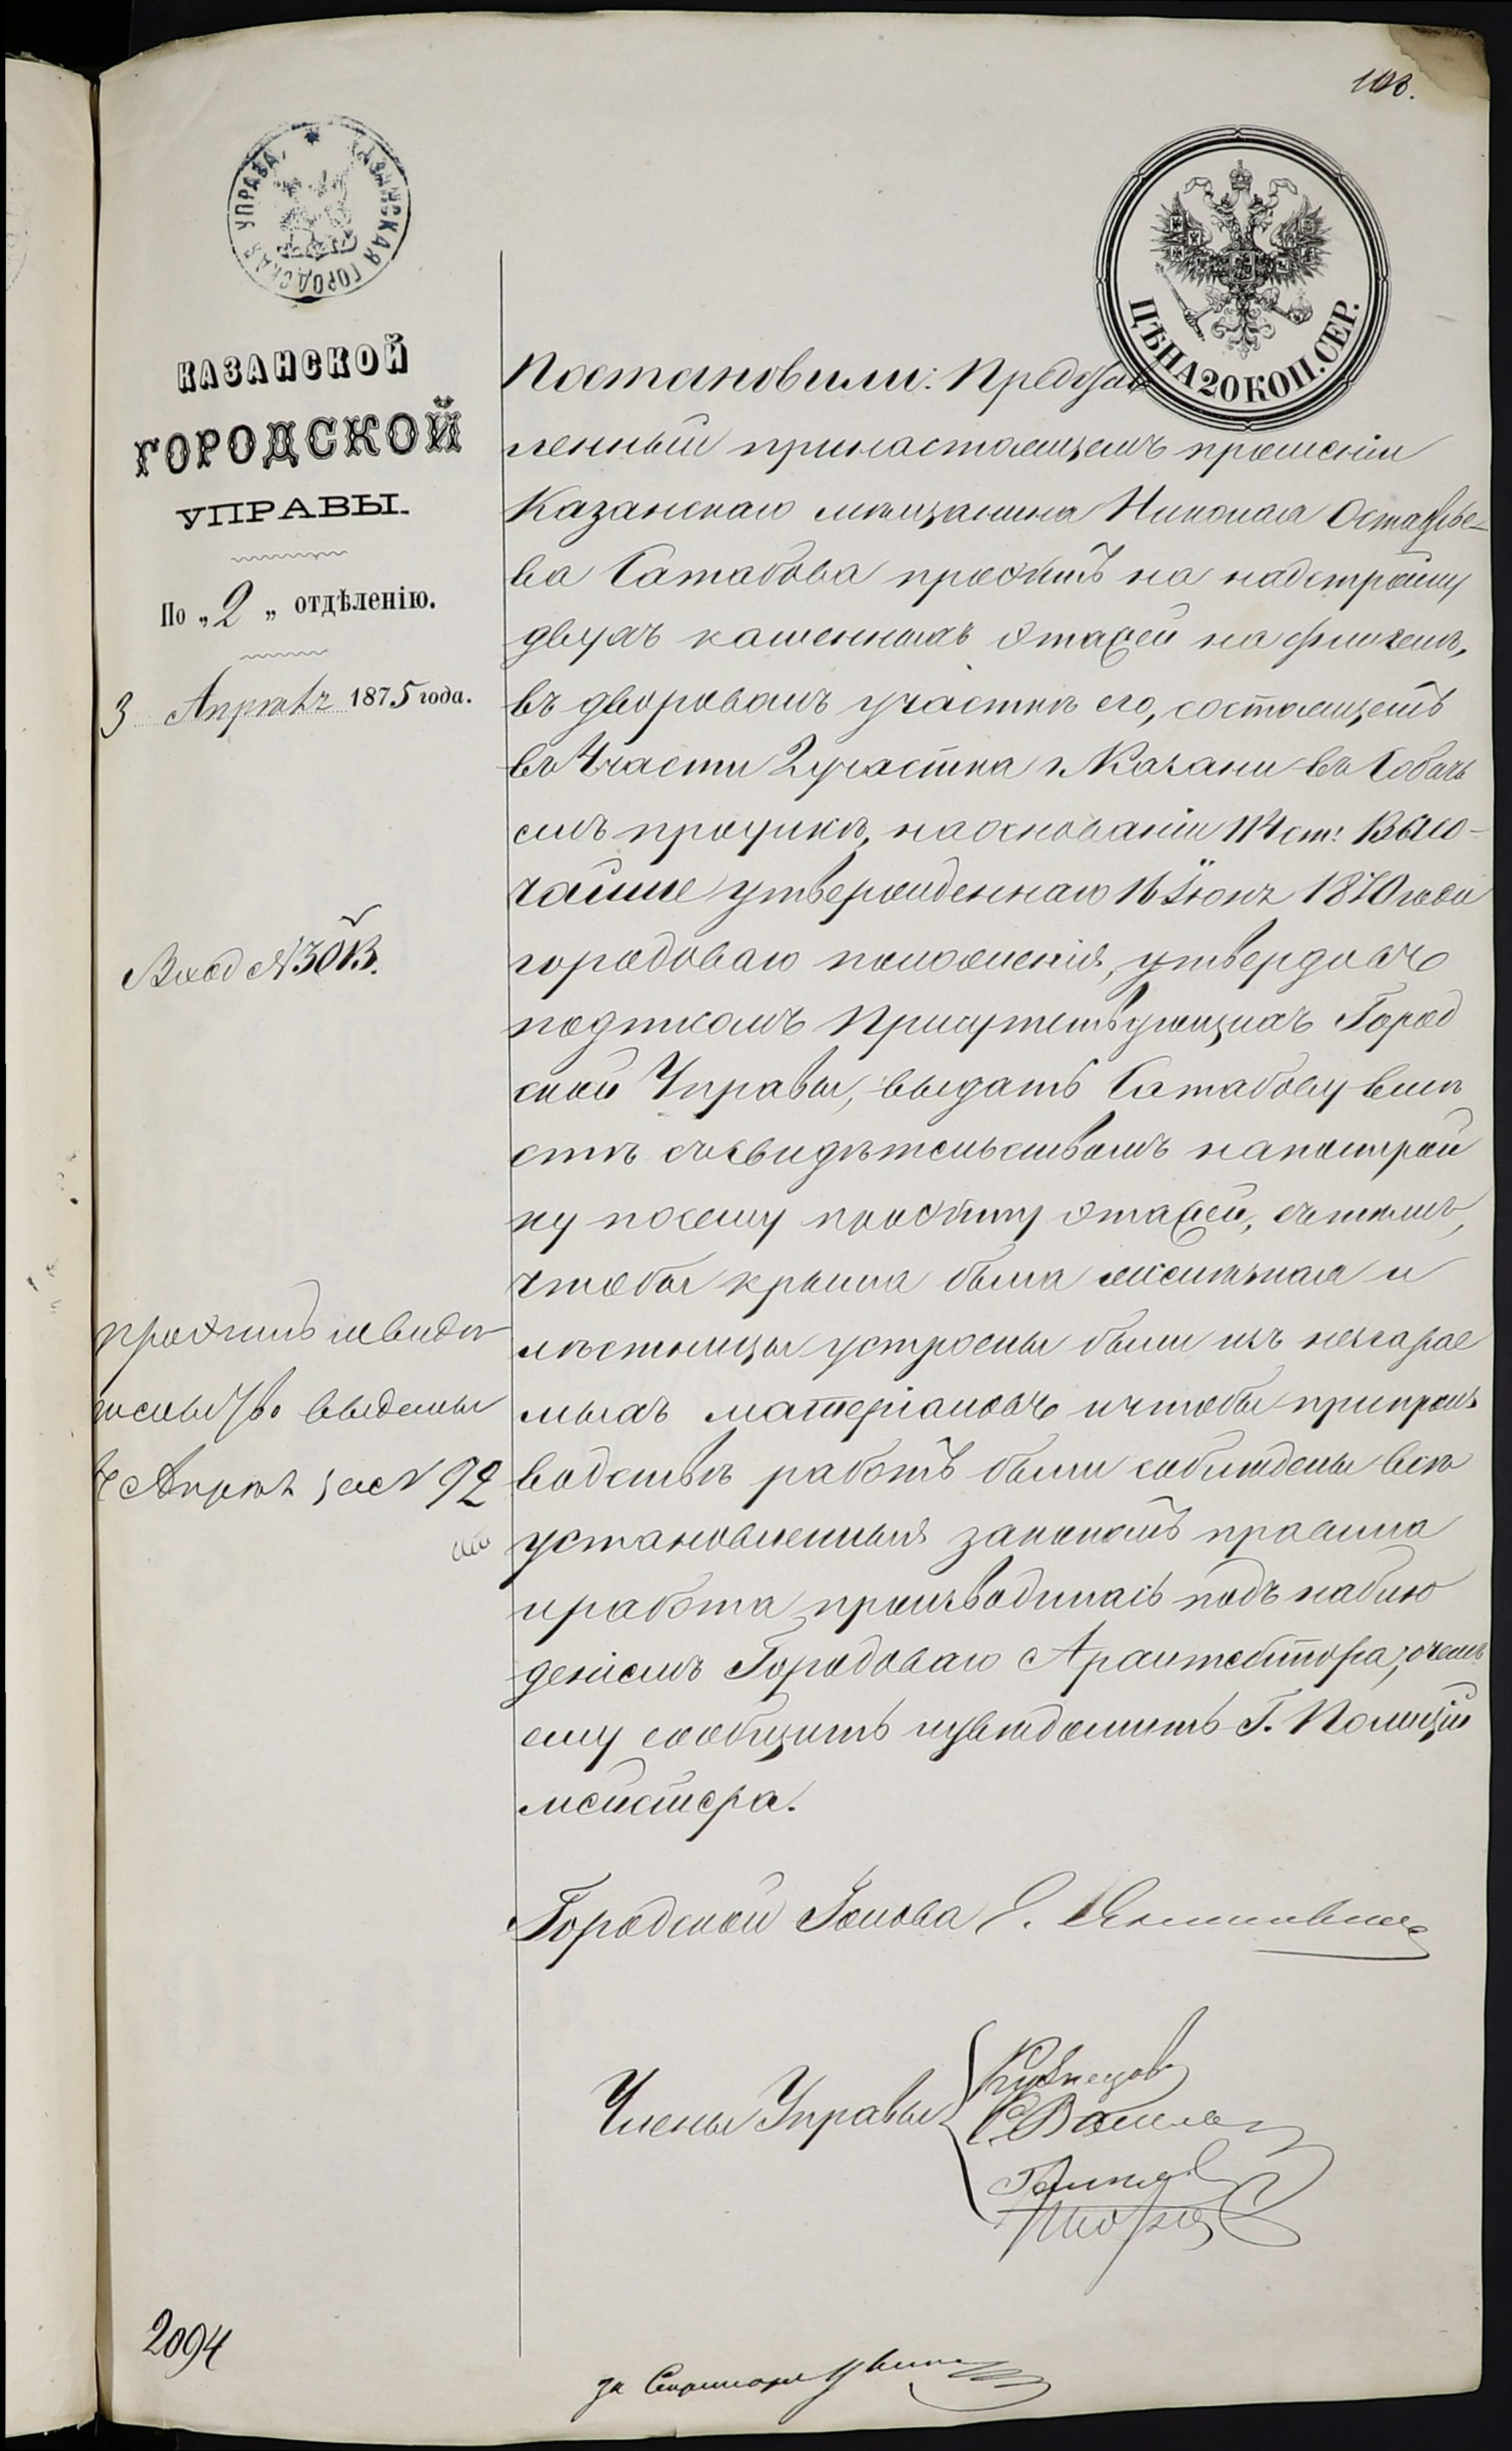 108.
КАЗАНСКАЯ ГОРОДСКАЯ УПРАВА
ЦѢНА 20 КОП. СЕР.
КАЗАНСКОЙ
ГОРОДСКОЙ
УПРАВЫ.
По „2„ отдѣленію.
3 Апрѣля 1875 года.
Вход №3013.
проэктъ и свидѣ
тельство выданы
Апрѣля за №92
2094
Постановили: Представ
ленный при настоящемъ прошеніи
Казанскаго мѣщанина Николая Остафье-
ва Сатабова проэктъ на надстройку
двухъ каменныхъ этажей на флигель,
въ дворовомъ участкѣ его, состоящемъ
въ 4 части 2 участка г. Казани въ Собачь
емъ проулкѣ, на основаніи 114 ст. Высо-
чайше утвержденнаго 16 Іюня 1870 года
городоваго положенія, утвердивъ
подписомъ Присутствующихъ Город
ской Управы, выдать Сатабову вмѣ
стѣ съ свидѣтельствомъ на построй
ку по сему проэкту этажей, съ тѣмъ,
чтобы крыша была желѣзная и
лѣстницы устроены были изъ несгарае
мыхъ матеріаловъ и чтобы при произ
водствѣ работъ были соблюдены всѣ
установленныя закономъ правила
и работа производилась подъ наблю
деніемъ Городоваго Архитектора, о чемъ
ему сообщить и увѣдомить Г. Полицій
мейстера.
Городской Голова Е.
Члены Управы
Кузнецовъ
за Секретаря